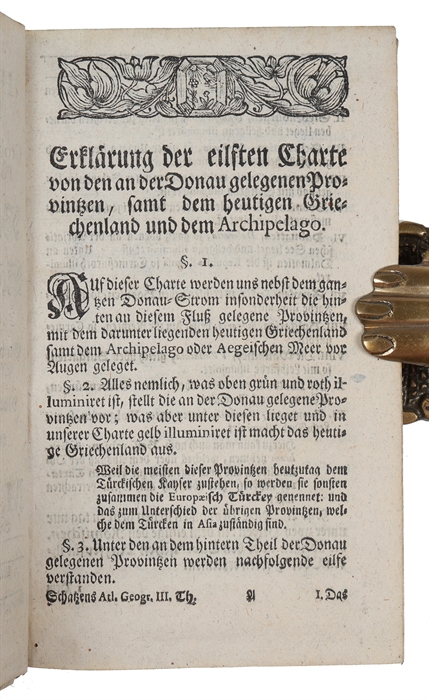 Erklärung der eilften Charte
von den an der Donau gelegenen Pro-
vintzen, samt dem heutigen Grie-
chenland und dem Archipelago.
§. 1.
Auf dieser Charte werden uns nebst dem gan-
tzen Donau-Strom insonderheit die hin-
ten an diesem Fluß gelegene Provintzen,
mit dem darunter liegenden heutigen Griechenland
samt dem Archipelago oder Aegeischen Meer vor
Augen geleget.
§. 2. Alles nemlich, was oben grün und roth il-
luminiret ist, stellt die an der Donau gelegene Pro-
vintzen vor; was aber unter diesen lieget und in
unserer Charte gelb illuminiret ist macht das heuti-
ge Griechenland aus.
Weil die meisten dieser Provintzen heutzutag dem
Türckischen Kayser zustehen, so werden sie sonsten
zusammen die Europæisch Türckey genennet: und
das zum Unterschied der übrigen Provintzen, wel-
che dem Türcken in Asia zuständig sind.
§. 3. Unter den an dem hintern Theil der Donau
gelegenen Provintzen werden nachfolgende eilfe
verstanden.
Schatzens Atl. Geogr. III. Th. A I. Das